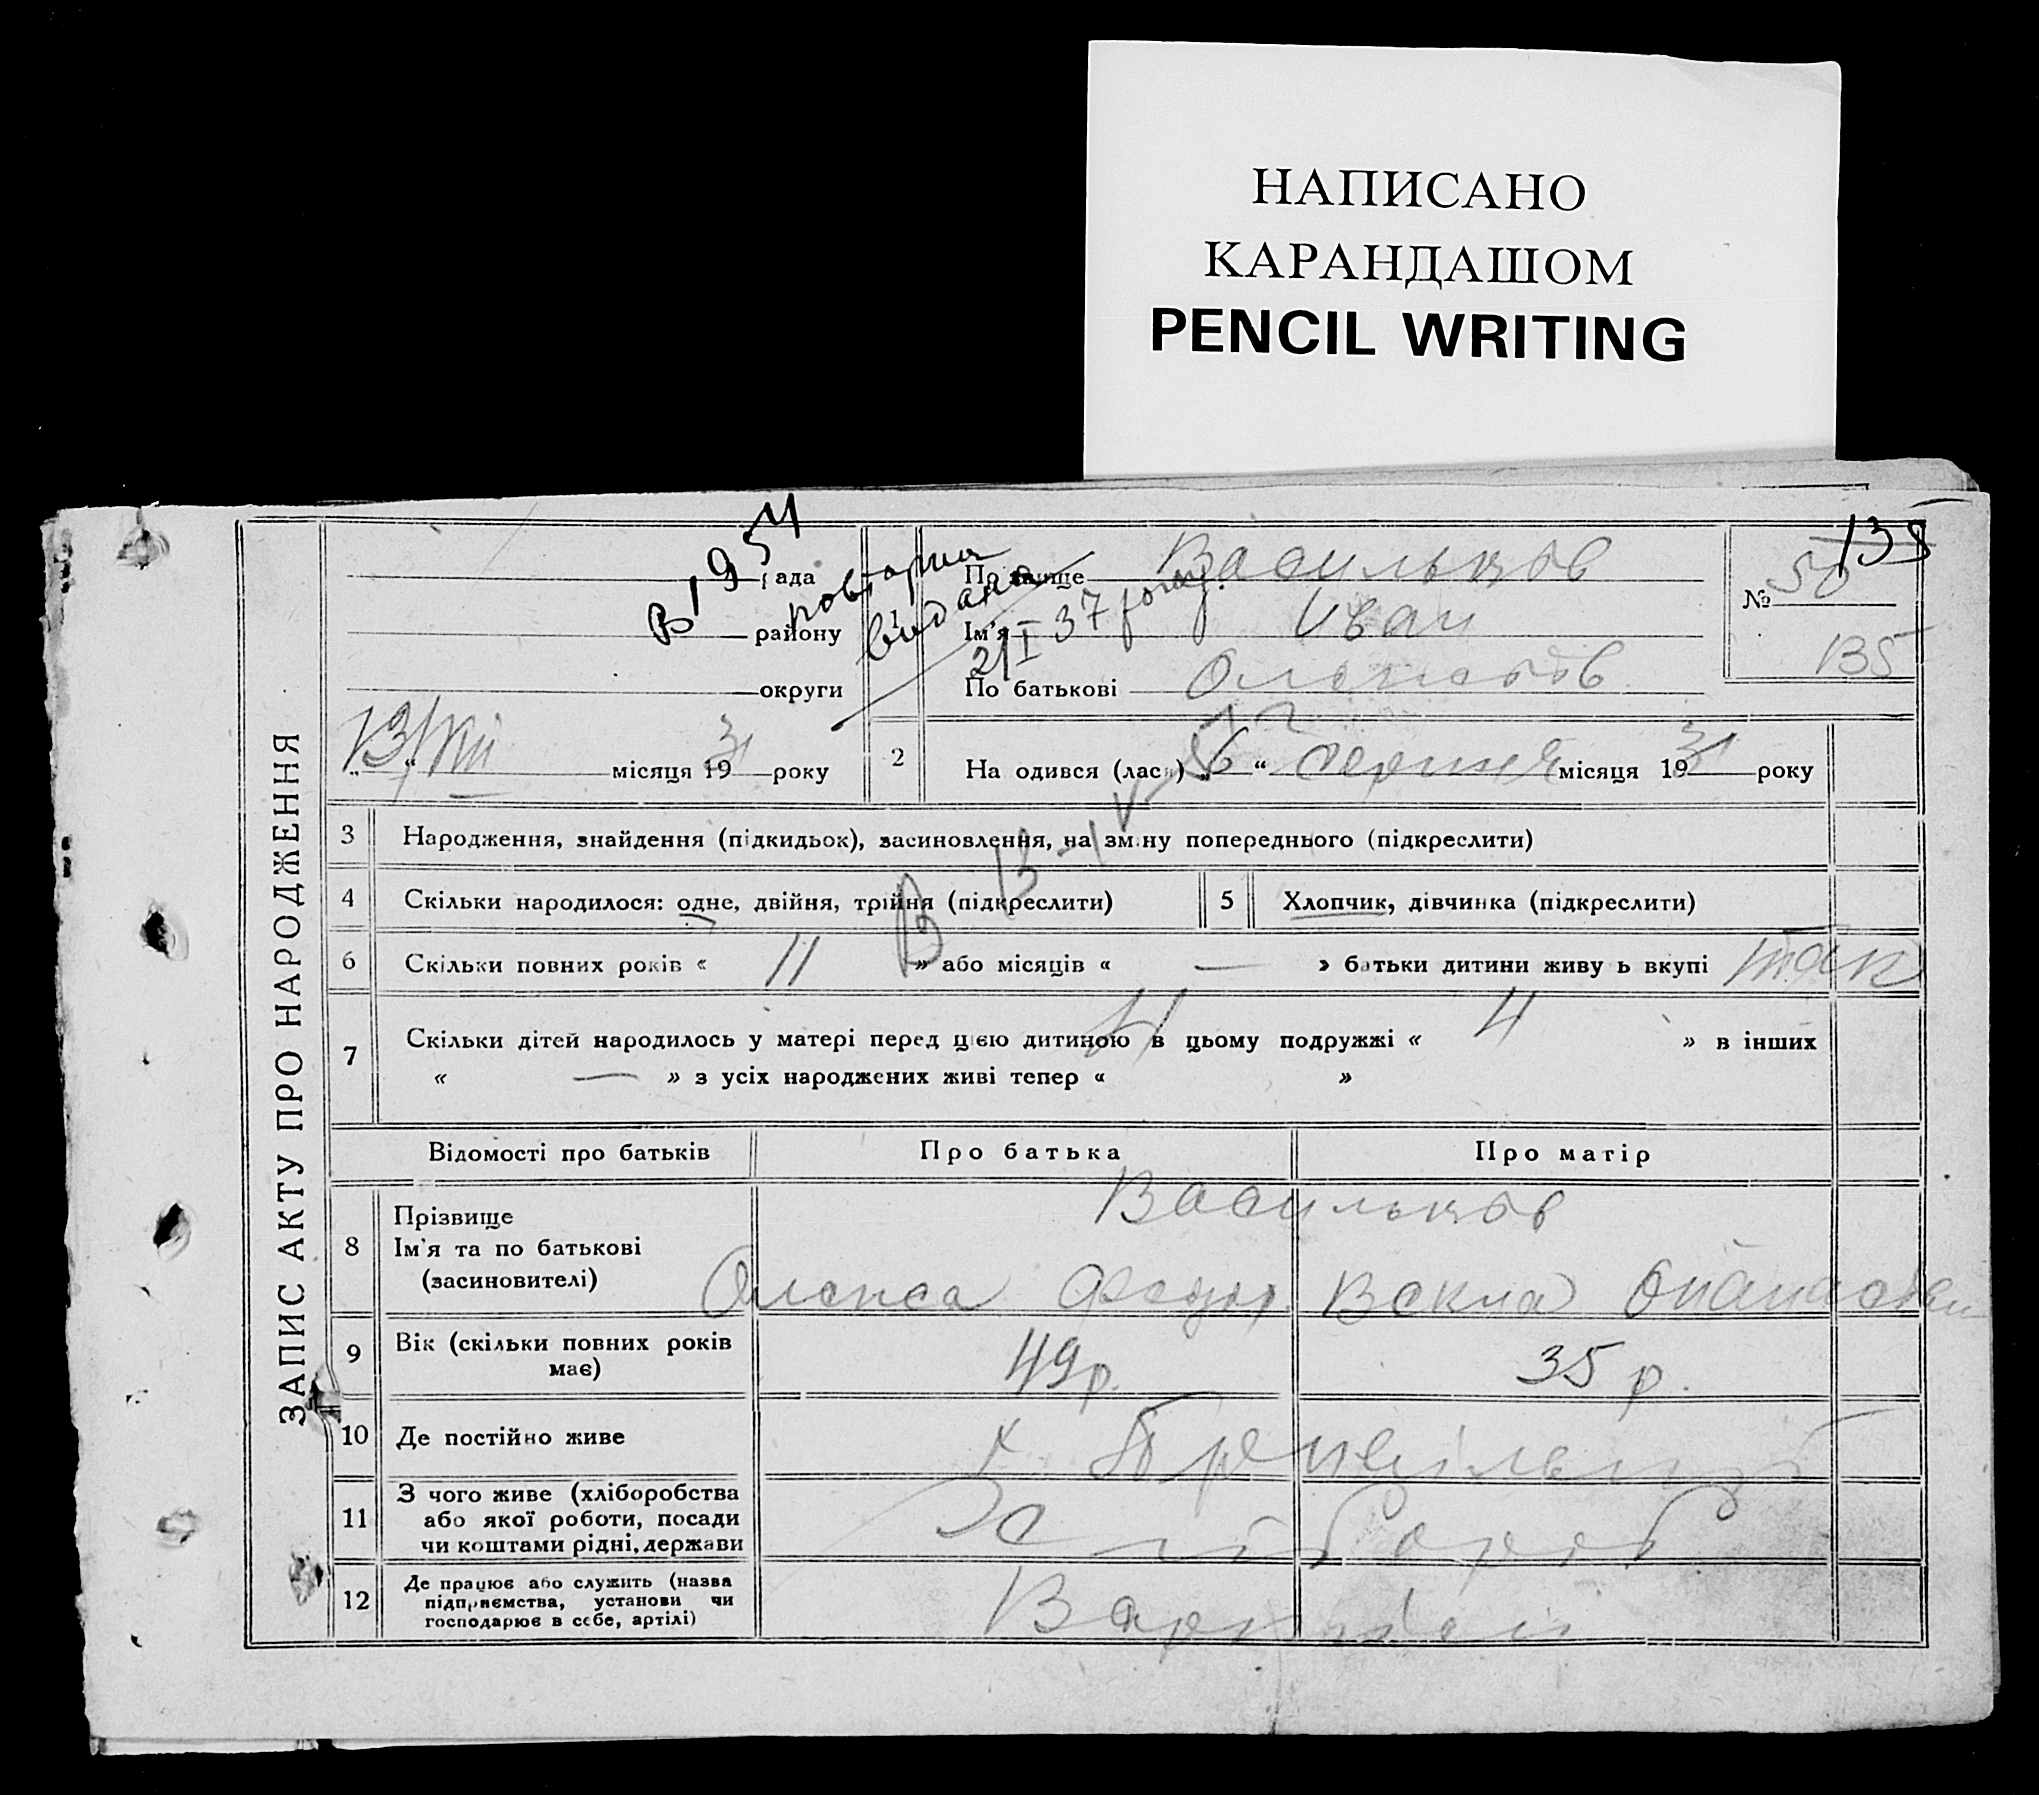 НАПИСАНО
КАРАНДАШОМ
PENCIL WRITING
138
ЗАПИС АКТУ ПРО НАРОДЖЕННЯ
рада
району
округи
В 1954
повторна
видана
21 I 37 року
Прізвище Васильков
Ім'я Иван
По батькові
№ 50
135
13/VIII місяця 1931 року
2 На одився (лась) „6“ серпня місяця 1931 року
3 Народження, знайдення (підкидьок), засиновлення, на зміну попереднього (підкреслити)
4 Скільки народилося: одне, двійня, трійня (підкреслити) 5 Хлопчик, дівчинка (підкреслити)
6 Скільки повних років « 11 » або місяців « — » батьки дитини живу ь вкупі так
7 Скільки дітей народилось у матері перед цією дитиною в цьому подружжі « 4 » в інших
« — » з усіх народжених живі тепер « 4 »
Відомості про батьків Про батька Про матір
8 Прізвище
Ім'я та по батькові
(засиновителі)
Васильков
Олекса Федор Векла
9 Вік (скільки повних років
має)
49 р. 35 р.
10 Де постійно живе
х.
11 З чого живе (хліборобства
або якої роботи, посади
чи коштами рідні, держави
Хлібороб
12 Де працює або служить (назва
підприємства, установи чи
господарює в себе, артілі)